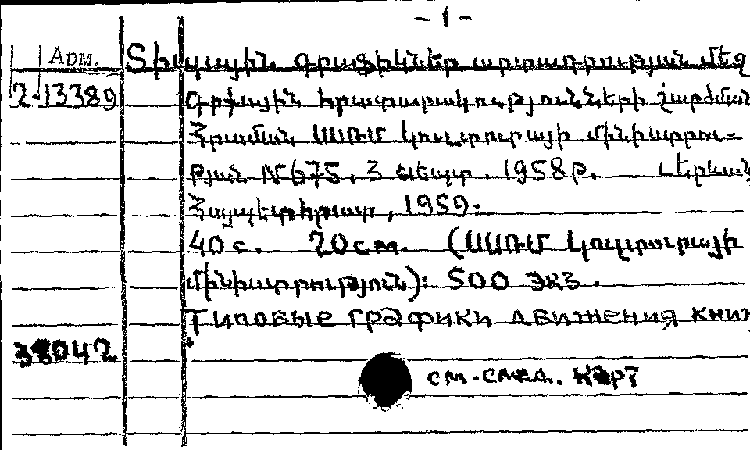 - 1 -
Арм. Տիպային գրաֆիկներ արտադրության մեջ
2-13389 գրքային հրատարակությունների շարժման
Հրաման ՍՍՌՄ Կուլտուրայի մինիստրու-
թյան №675, 3 սեպտ. 1958թ. Երևան,
Հայպետհրատ, 1959.
40 с. 20 см. (ՍՍՌՄ Կուլտուրայի
մինիստրություն): 500 экз.
Типовые графики движения книж
38042
см. след. карт